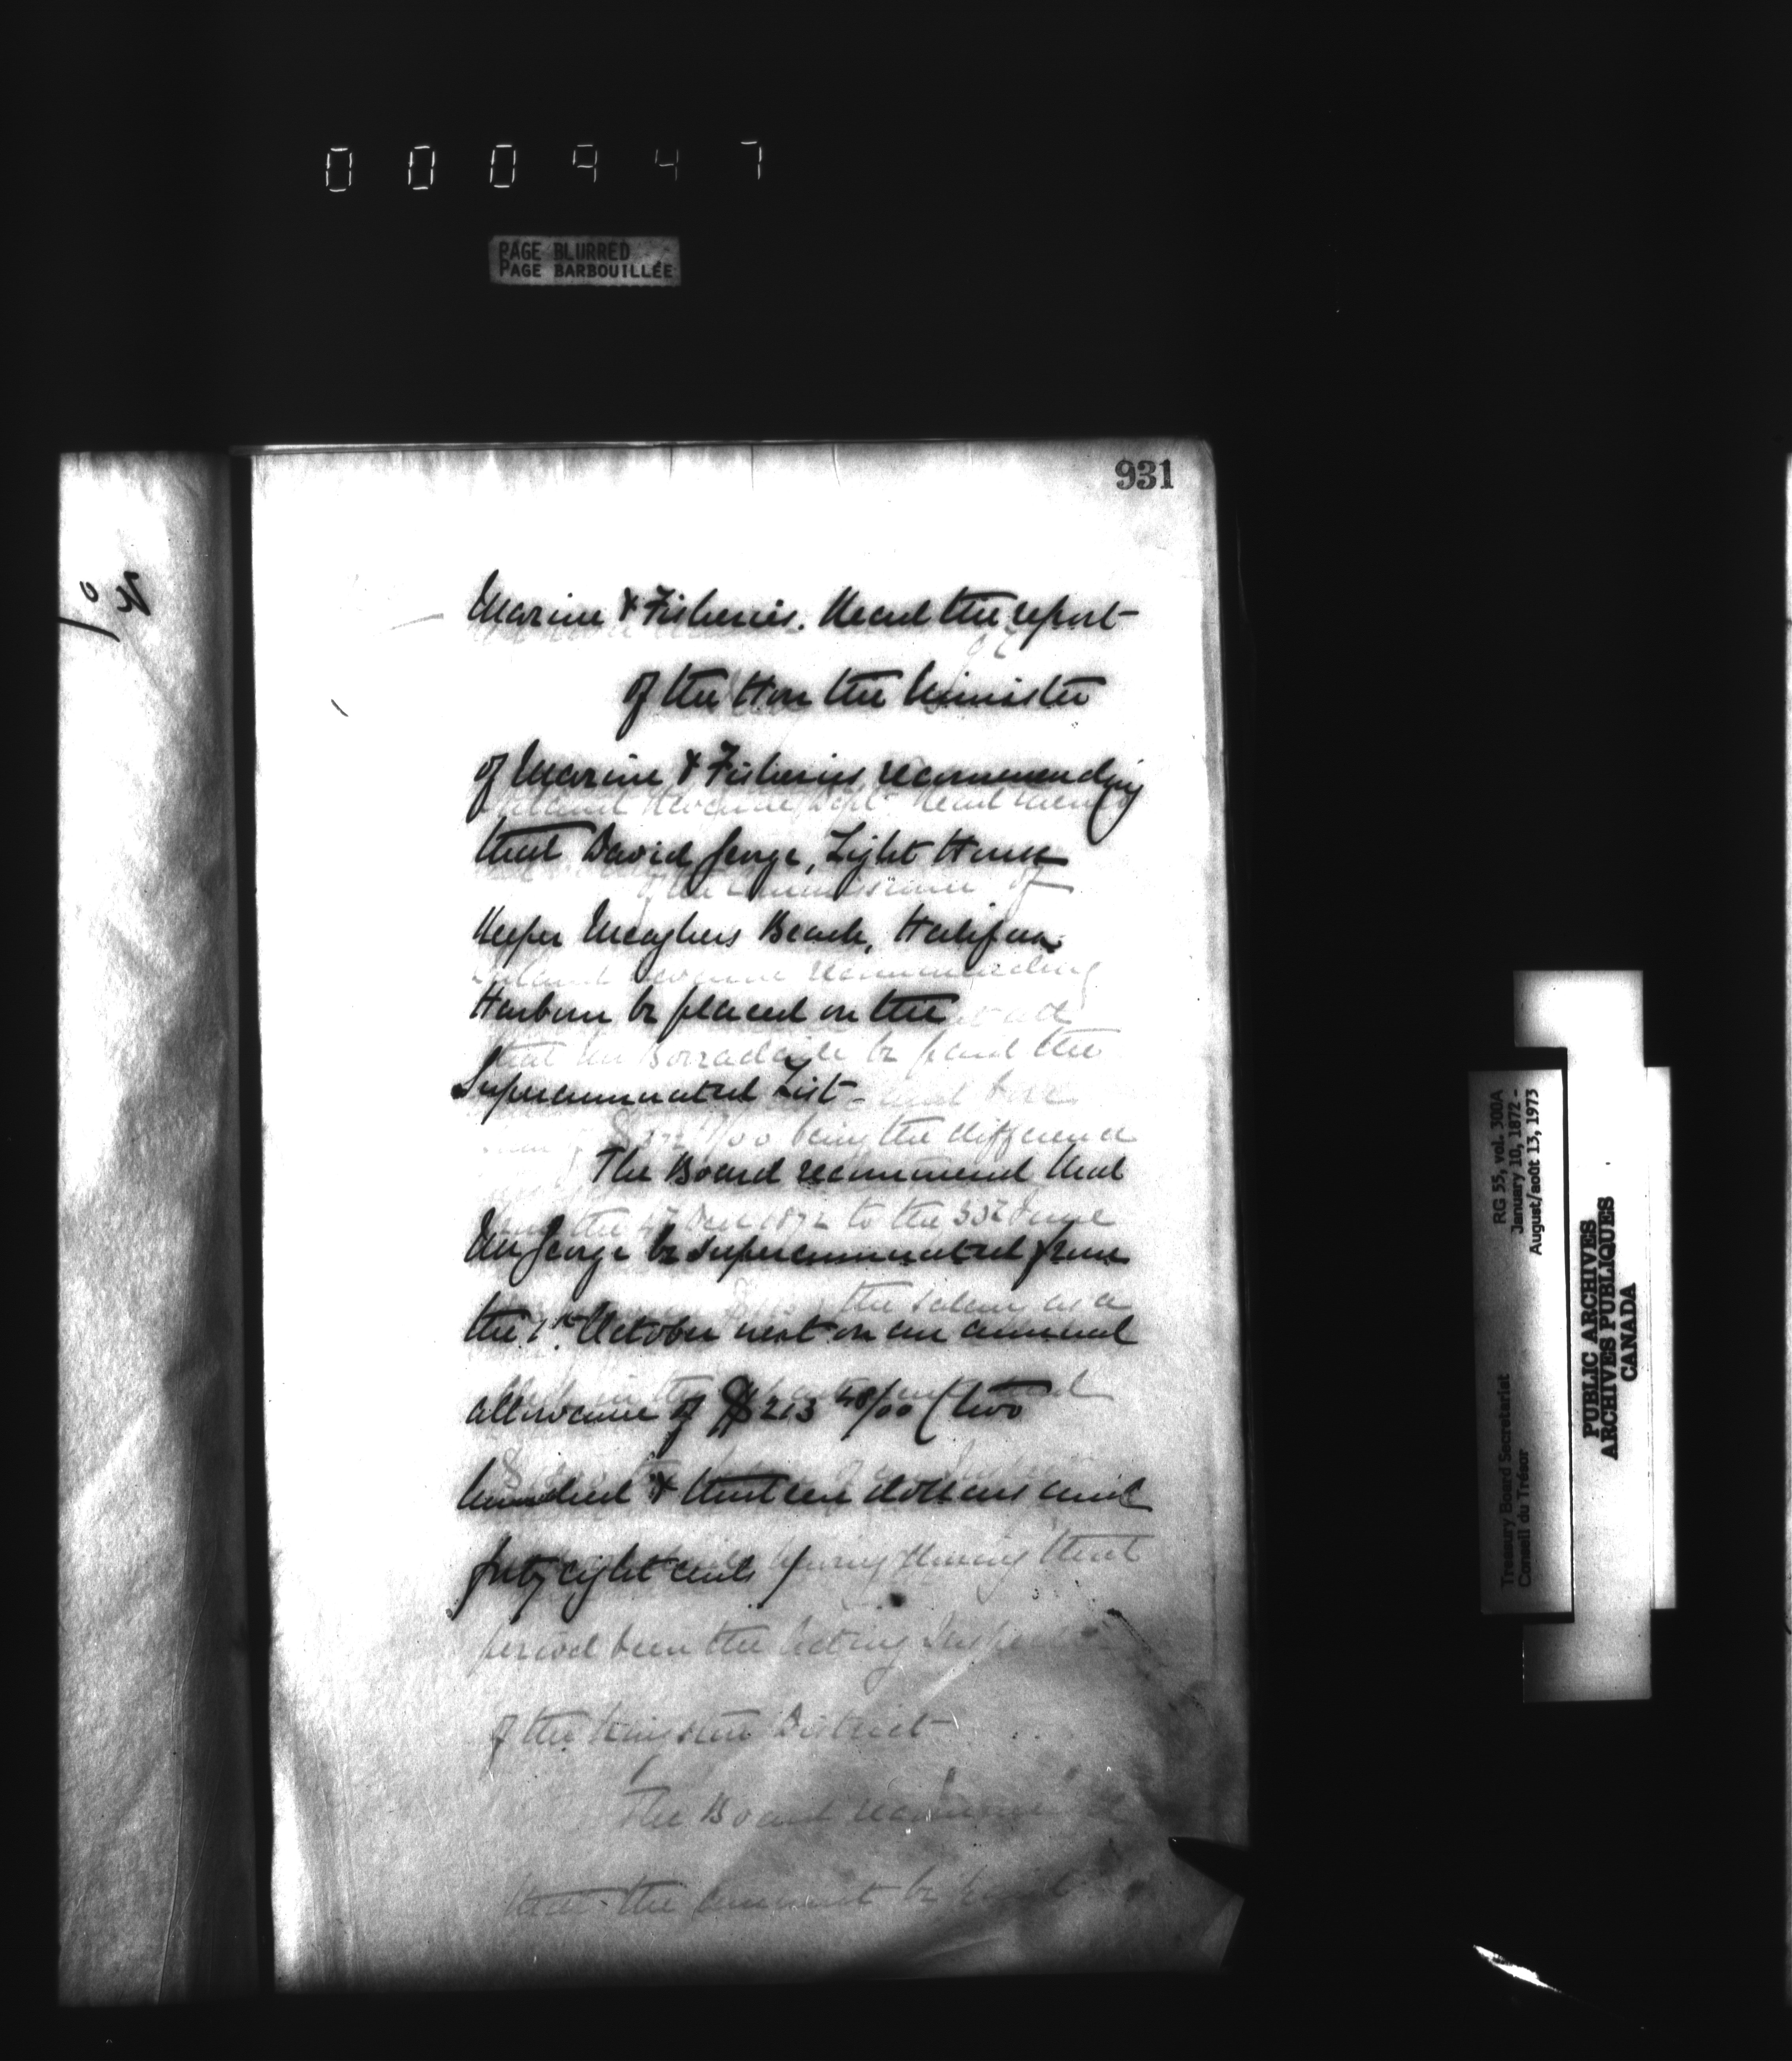 000947
PAGE BLURRED
PAGE BARBOUILLÉE
931
Marine & Fisheries. Read the report
of the Hon the Minister
of Marine & Fisheries recommending
that David George, Light House
Keeper Meaghers Beach, Halifax
Harbour be placed on the
Superannuated List -
The Board recommend that
Mr George be superannuated from
the 1st October next on an annual
allowance of $213 48/00 (two
hundred & thirteen dollars and
forty eight cents
Inland Revenue Dept. Read memo
of the Commissioner of
Inland Revenue recommending
that Mr Borradaile be paid the
being the difference
the 4th Dec 1872 to the 30th June
the salary as a
having during that
period been the Acting Inspector
of the Kingston District
The Board recommend
that the amount be paid
RG 55, vol. 300A
January 10, 1872 -
August/août 13, 1973
Treasury Board Secretariat
Conseil du Trésor
PUBLIC ARCHIVES
ARCHIVES PUBLIQUES
CANADA